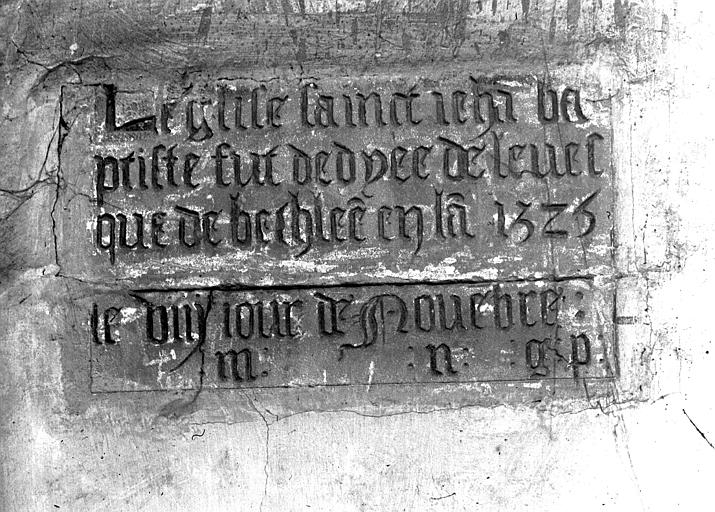 Leglise sainct iehā ba
ptiste fut dedyee de levesc
que de bethleē en lā 1525
le viiȷ iour de Novebre :
m : : n : : g : p :